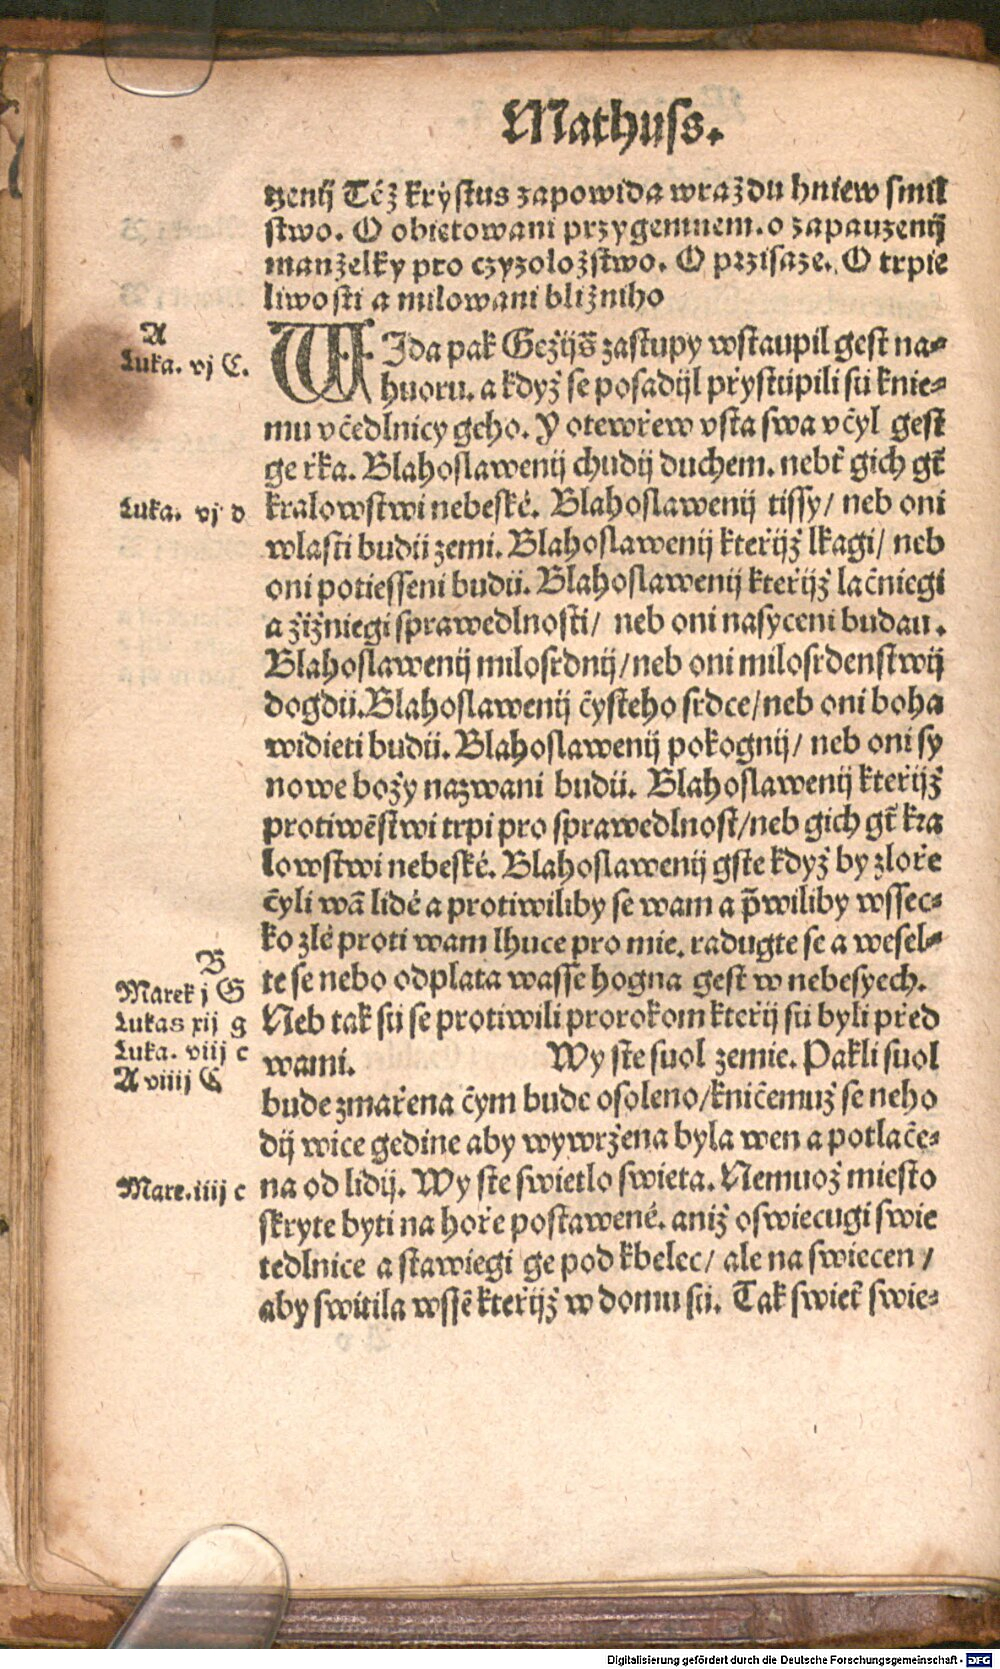 Mathuſs.
tzenij Téz kryſtus zapowida wraždu hniew ſmil
ſtwo. O obietowani przygemnem. o zapauzenij
manželky pro czyzoložſtwo. O prziſaze. O trpie
liwoſti a milowani bližniho
A
Luka. vj C.
WIda pak Gežijš zaſtupy wſtaupil geſt na⸗
huoru. a když ſe poſadijl přyſtúpili ſú knie⸗
mu včedlnicy geho. Y otewřew vſta ſwa včyl geſt
ge řka. Blahoſlawenij chudij duchem. nebť gich gť
Luka. vj d
kralowſtwi nebeſké. Blahoſlawenij tiſſy/ neb oni
wlaſti budú zemi. Blahoſlawenij kteřijž lkagi/ neb
oni potieſſeni budú. Blahoſlawenij kteřijž lačniegi
a žižniegi ſprawedlnoſti/ neb oni naſyceni budau.
Blahoſlawenij miloſrdnij/neb oni miloſrdenſtwij
dogdú. Blahoſlawenij čyſteho ſrdce/neb oni boha
widieti budú. Blahoſlawenij pokognij/ neb oni ſy
nowe božy nazwani budú. Blahoſlawenij kteřijž
protiwēſtwi trpi pro ſprawedlnoſt/neb gich gť kra
lowſtwi nebeſké. Blahoſlawenij gſte když by zloře
čyli wā lidé a protiwiliby ſe wam a p̄wiliby wſſec⸗
ko zlé proti wam lhuce pro mie. radugte ſe a weſel⸗
B
Marek j G
te ſe nebo odplata waſſe hogna geſt w nebeſyech.
Lukas xij g
Neb tak ſú ſe protiwili prorokom kteřij ſú byli před
Luka. viij c
wami. Wy ſte ſuol zemie. Pakli ſuol
A viiij C
bude zmařena čym bude oſoleno/kničemuž ſe neho
dij wice gedine aby wywržena byla wen a potlače⸗
Mare. iiij c
na od lidij. Wy ſte ſwietlo ſwieta. Nemuož mieſto
ſkryte byti na hoře poſtawené. aniž oſwiecugi ſwie
tedlnice a ſtawiegi ge pod kbelec/ ale na ſwiecen/
aby ſwitila wſſē kteřijž w domu ſú. Tak ſwieť ſwie⸗
Digitalisierung gefördert durch die Deutsche Forschungsgemeinschaft - DFG